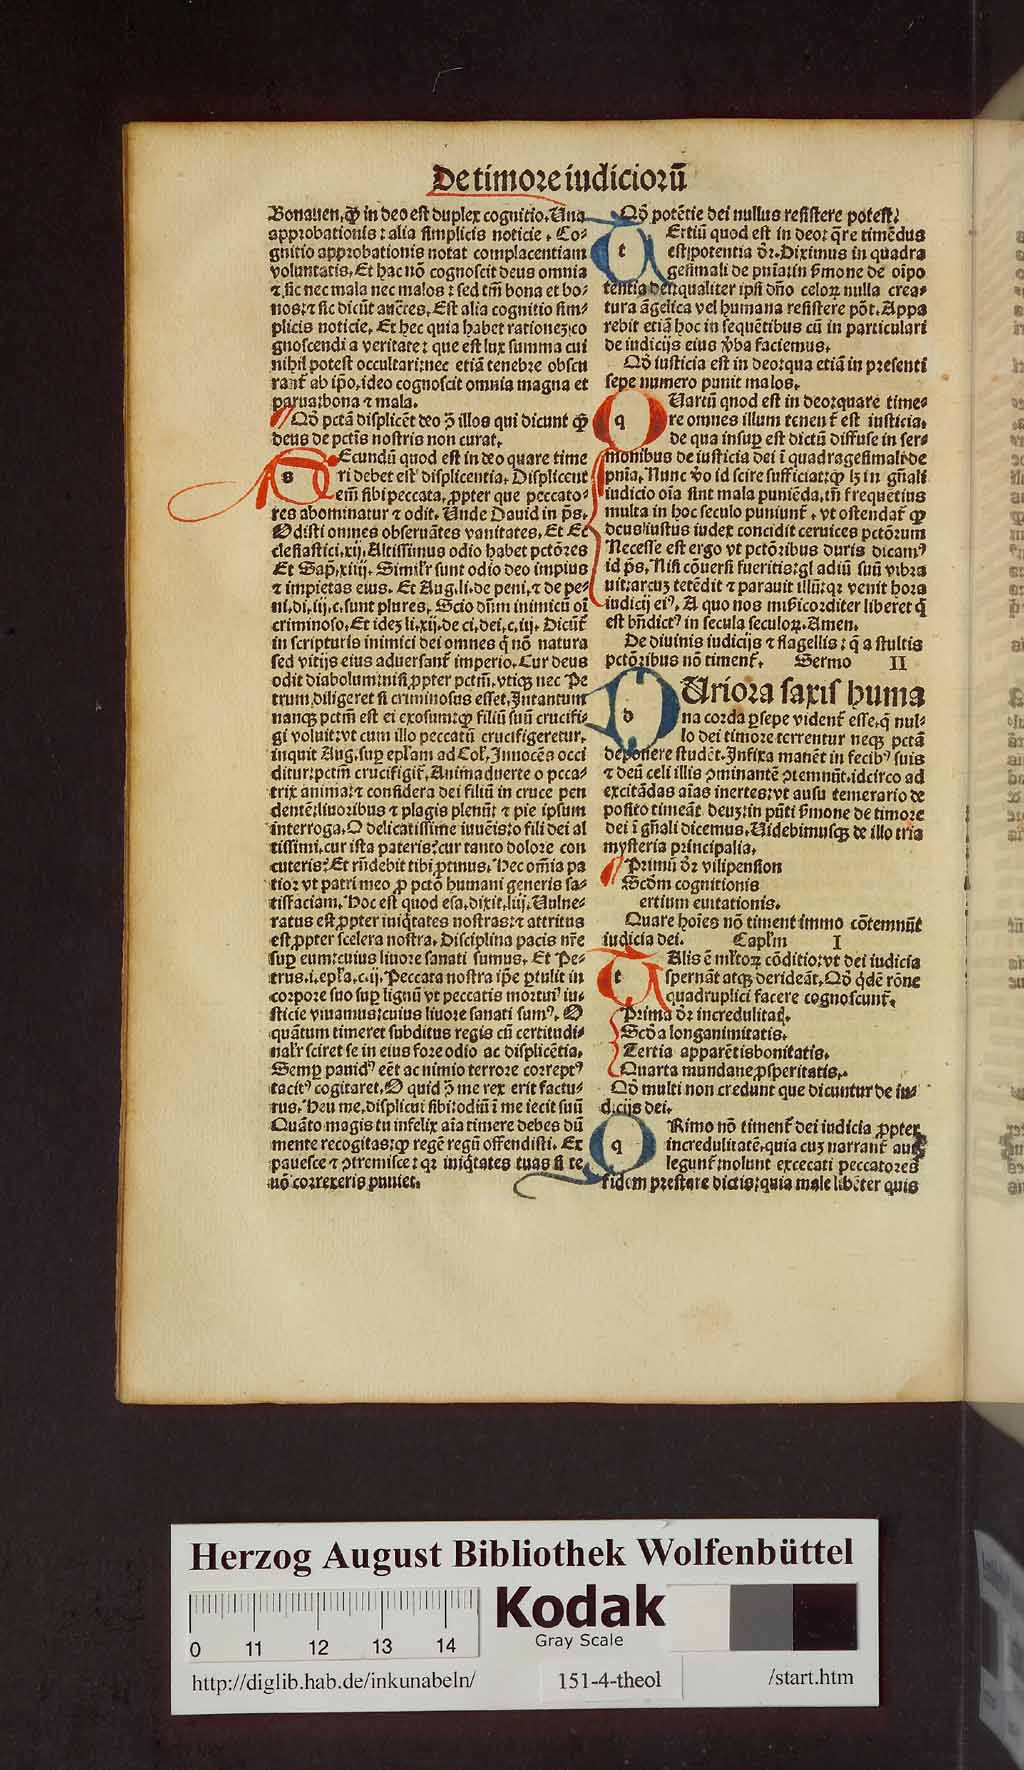 De timore iudicioꝝ
Bonauen. ꝙ in deo est duplex cognitio. Una
approbationis: alia simplicis noticie. Co-
gnitio approbationis notat complacentiam
voluntatis. Et hac nō cognoscit deus omnia
⁊ sic nec mala nec malos: sed tm̄ bona et bo-
nos: ⁊ sic dicūt auctēs. Est alia cognitio sim-
plicis noticie. Et hec quia habet rationeꝫ co
gnoscendi a veritate: que est lux summa cui
nihil potest occultari: nec etiā tenebre obscu
rant̄ ab ip̄o. ideo cognoscit omnia magna et
parua: bona ⁊ mala.
Qō pctā displicēt deo ꝯ̄ illos qui dicunt ꝙ
deus de pctīs nostris non curat.
s Ecundū quod est in deo quare time
ri debet est displicentia. Displicent
eīm sibi peccata. ꝓpter que peccato-
res abominatur ⁊ odit. Unde Dauid in p̄s.
Odisti omnes obseruātes vanitates. Et Ec
clesiastici. xij. Altissimus odio habet pctōres
Et Sap̄. xiiij. Simil'r sunt odio deo impius
⁊ impietas eius. Et Aug. li. de peni. ⁊ de pe-
ni. di. iij. c. sunt plures. Scio dn̄m inimicū oī
criminoso. Et ideꝫ li. xij. de ci. dei. c. iij. Dicūt̄
in scripturis inimici dei omnes q̄ nō natura
sed vitijs eius aduersant̄ imperio. Cur deus
odit diabolum: nisi ꝓpter pctm̄. vtiqꝫ nec Pe
trum diligeret si criminosus esset. Intantum
nanqꝫ pctm̄ est ei exosum: ꝙ filiū suū crucifi-
gi voluit: vt cum illo peccatū crucifigeretur.
inquit Aug. suꝑ epl'am ad Col'. Innocēs occi
ditur: pctm̄ crucifigit̄. Animaduerte o pcca-
trix anima: ⁊ considera dei filiū in cruce pen
dentē: liuoribus ⁊ plagis plenū: ⁊ pie ipsum
interroga. O delicatissime iuuēis: o fili dei al
tissimi. cur ista pateris? cur tanto dolore con
cuteris? Et rn̄debit tibi ꝓtinus. Hec om̄ia pa
tior vt patri meo ꝓ pctō humani generis sa-
tisfaciam. Hoc est quod esa. dixit. liij. Uulne-
ratus est ꝓpter iniq̄tates nostras: ⁊ attritus
est ꝓpter scelera nostra. Disciplina pacis nr̄e
suꝑ eum: cuius liuore sanati sumus. Et Pe-
trus. i. epl'a. c. ij. Peccata nostra ip̄e ꝑtulit in
corpore suo suꝑ lignū vt peccatis mortuꝰ iu-
sticie viuamus: cuius liuore sanati sumꝰ. O
quātum timeret subditus regis cū certitudi-
nal'r sciret se in eius fore odio ac displicētia.
Semꝑ pauidꝰ eēt ac nimio terrore correptꝰ
tacitꝰ cogitaret. O quid ꝯ̄ me rex erit factu-
rus. Heu me. displicui sibi: odiū ī me iecit suū
Quāto magis tu infelix aīa timere debes dū
mente recogitas: ꝙ regē regū offendisti. Ex
pauesce ⁊ ꝯtremisce: qꝛ iniq̄tates tuas si te
nō correxeris puniet.
Qō potētie dei nullus resistere potest.
t Ertiū quod est in deo: q̄re timēdus
est: potentia dr̄. Diximus in quadra
gesimali de pnīa: in s̄mone de oīpo
tentia dei: qualiter ipsi dn̄o celoꝝ nulla crea-
tura āgelica vel humana resistere pōt. Appa
rebit etiā hoc in sequētibus cū in particulari
de iudicijs eius v̄ba faciemus.
Qō iusticia est in deo: qua etiā in presenti
sepe numero punit malos.
q Uartū quod est in deo: quare time-
re omnes illum tenent̄ est iusticia.
de qua insuꝑ est dictū diffuse in ser-
monibus de iusticia dei ī quadragesimali de
pnīa. Nunc v̄o id scire sufficiat: ꝙ lꝫ in gn̄ali
iudicio oīa sint mala puniēda. tn̄ frequētius
multa in hoc seculo puniunt̄. vt ostendat̄ ꝙ
deus iustus iudex concidit ceruices pctōrum
Necesse est ergo vt pctōribus duris dicamꝰ
id p̄s. Nisi cōuersi fueritis: gladiū suū vibra
uit: arcuꝫ tetēdit ⁊ parauit illū: qꝛ venit hora
iudicij eiꝰ. A quo nos mīsicorditer liberet q̄
est bn̄dictꝰ in secula seculoꝝ. Amen.
De diuinis iudicijs ⁊ flagellis: q̄ a stultis
pctōribus nō timent̄. Sermo II
d Uriora saxis huma
na corda ꝑsepe vident̄ esse. q̄ nul-
lo dei timore terrentur neqꝫ pctā
deponere studēt. Infixa manēt in fecibꝰ suis
⁊ deū celi illis ꝯminantē ꝯtemnūt. idcirco ad
excitādas aīas inertes: vt ausu temerario de
posito timeāt deuꝫ: in pn̄ti s̄mone de timore
dei ī gn̄ali dicemus. Uidebimusqꝫ de illo tria
mysteria principalia.
Primū dr̄ vilipension
Scdm̄ cognitionis
ertium euitationis.
Quare hoīes nō timent immo cōtemnūt
iudicia dei. Capl'm I
t Alis ē ml'toꝝ cōditio: vt dei iudicia
spernāt atqꝫ derideāt. Qō q̄dē rōne
quadruplici facere cognoscunt̄.
Prima dr̄ incredulitaꝭ.
Scd̄a longanimitatis.
Tertia apparētis bonitatis.
Quarta mundane ꝓsperitatis.
Qō multi non credunt que dicuntur de iu-
dicijs dei.
q Rimo nō timent̄ dei iudicia ꝓpter
incredulitatē. quia cuꝫ narrant̄ aut
legunt̄: nolunt excecati peccatores
fidem prestare dictis: quia male libēter quis
Herzog August Bibliothek Wolfenbüttel
Kodak
Gray Scale
0 11 12 13 14
http://diglib.hab.de/inkunabeln/ 151-4-theol /start.htm